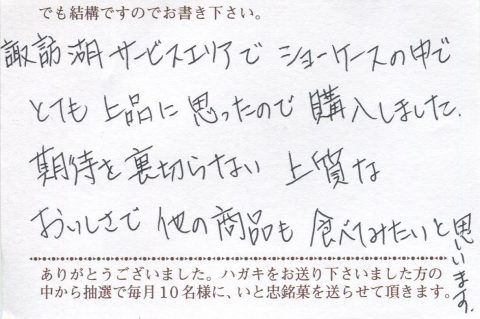 でも結構ですのでお書き下さい。
諏訪湖サービスエリアで ショーケースの中で
とても上品に思ったので 購入しました.
期待を裏切らない 上質な
おいしさで 他の商品も 食べてみたいと思います.
ありがとうございました。ハガキをお送り下さいました方の
中から抽選で毎月10名様に、いと忠銘菓を送らせて頂きます。